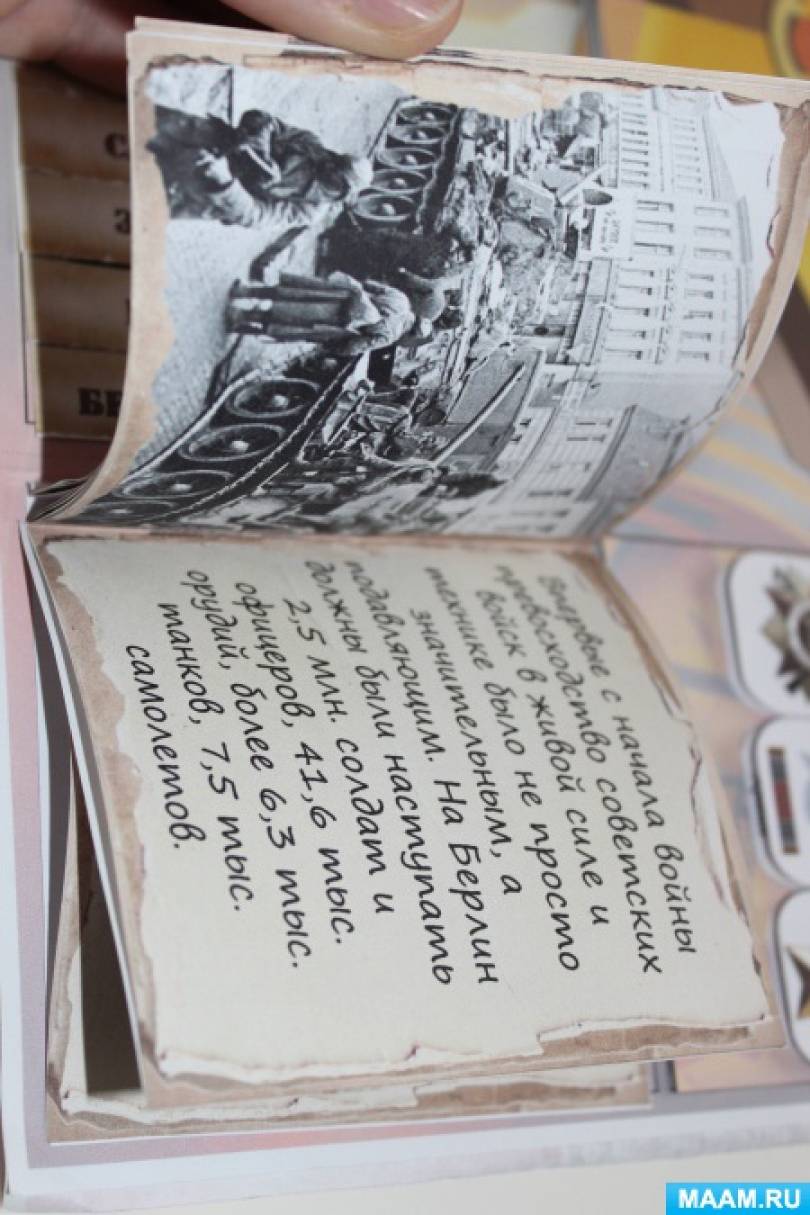 Впервые с начала войны
превосходство советских
войск в живой силе и
технике было не просто
значительным, а
подавляющим. На Берлин
должны были наступать
2,5 млн. солдат и
офицеров, 41,6 тыс.
орудий, более 6,3 тыс.
танков, 7,5 тыс.
самолетов.
MAAM.RU